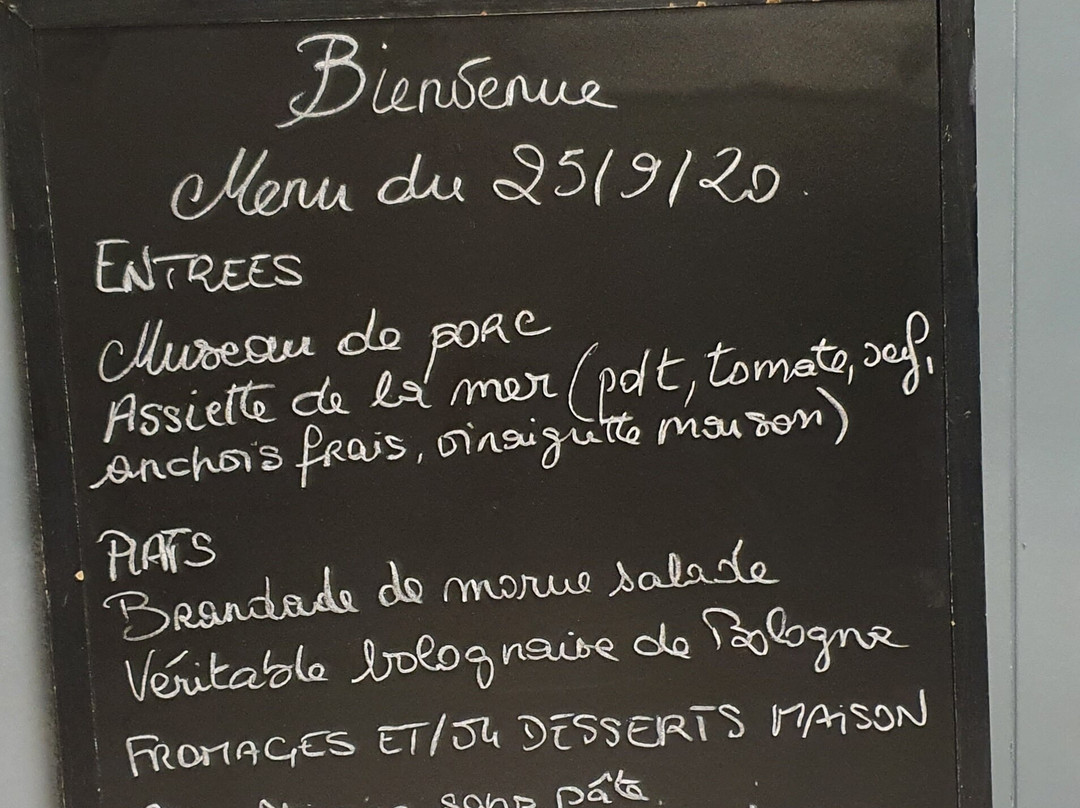 Bienvenue
Menu du 25/9/20.
ENTREES
Museau de porc
Assiette de la mer (pdt, tomate, oeuf,
anchois frais, vinaigrette maison)
PLATS
Brandade de morue salade
Véritable bolognaise de Bologne
FROMAGES ET/OU DESSERTS MAISON
sans pâte